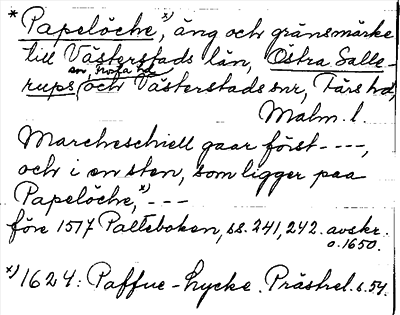 * Papelöche, x) äng och gränsmärke
till Västerstads län, Östra Salle-
snr, Frosta hd
rups (och Västerstads snr, Färs hd,
Malm. l.
Marcheschiell gaar först ----,
och i en sten, som ligger paa
Papelöche, x) ---
före 1517 Palteboken, ss. 241, 242. avskr.
o. 1650.
x) 1624: Paffue-lycke. Prästrel. s. 54.